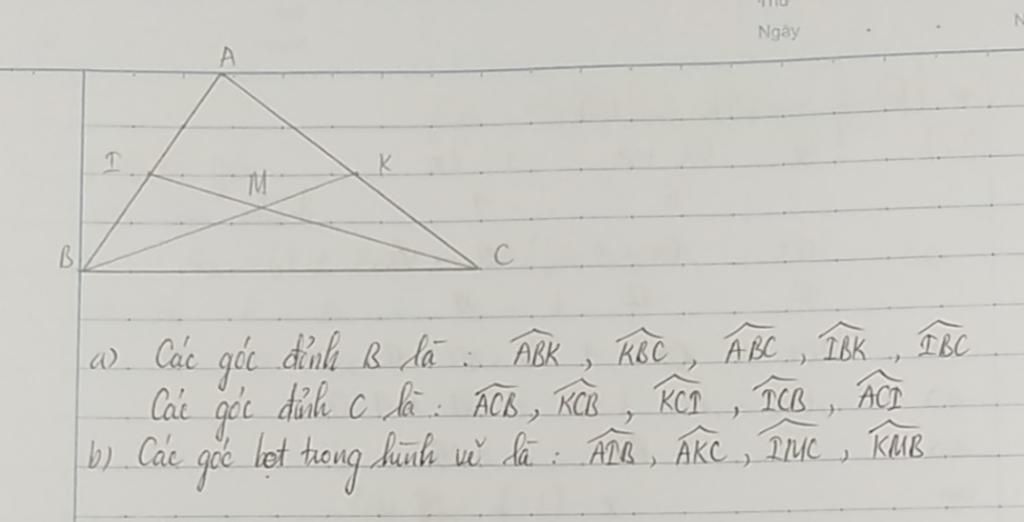 Ngày
A
I
K
M
B
C
a) Các góc đỉnh B là : ABK̂ , KBĈ , ABĈ , IBK̂ , IBĈ
Các góc đỉnh C là : ACB̂ , KCB̂ , KCÎ , ICB̂ , ACÎ
b) Các góc bẹt trong hình vẽ là : AIB̂ , AKĈ , IMĈ , KMB̂